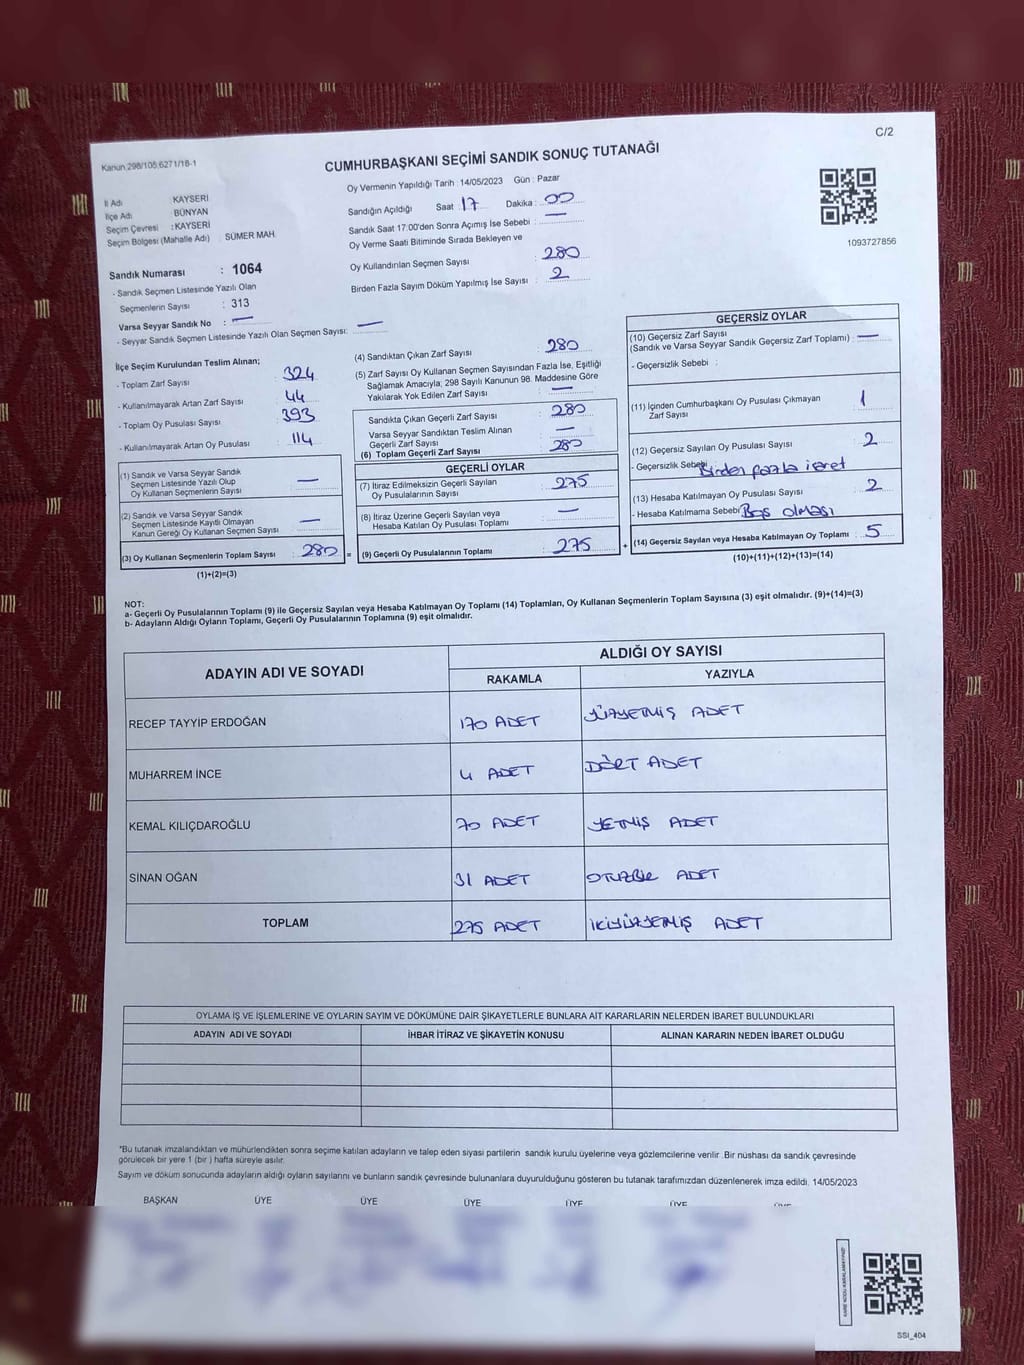 C/2
Kanun:298/105;6271/18-1
CUMHURBAŞKANI SEÇİMİ SANDIK SONUÇ TUTANAĞI
Oy Vermenin Yapıldığı Tarih : 14/05/2023 Gün : Pazar
İl Adı : KAYSERİ
İlçe Adı : BÜNYAN
Seçim Çevresi : KAYSERİ
Seçim Bölgesi (Mahalle Adı) : SÜMER MAH.
Sandığın Açıldığı Saat : 17 Dakika : 00
Sandık Saat 17:00'den Sonra Açımış İse Sebebi : —
Oy Verme Saati Bitiminde Sırada Bekleyen ve
Oy Kullandırılan Seçmen Sayısı : 280
Birden Fazla Sayım Döküm Yapılmış İse Sayısı : 2
1093727856
Sandık Numarası : 1064
- Sandık Seçmen Listesinde Yazılı Olan
Seçmenlerin Sayısı : 313
Varsa Seyyar Sandık No : —
- Seyyar Sandık Seçmen Listesinde Yazılı Olan Seçmen Sayısı: —
İlçe Seçim Kurulundan Teslim Alınan;
- Toplam Zarf Sayısı : 324
- Kullanılmayarak Artan Zarf Sayısı : 44
- Toplam Oy Pusulası Sayısı : 393
- Kullanılmayarak Artan Oy Pusulası : 114
(1) Sandık ve Varsa Seyyar Sandık
Seçmen Listesinde Yazılı Olup
Oy Kullanan Seçmenlerin Sayısı : —
(2) Sandık ve Varsa Seyyar Sandık
Seçmen Listesinde Kayıtlı Olmayan
Kanun Gereği Oy Kullanan Seçmen Sayısı : —
(3) Oy Kullanan Seçmenlerin Toplam Sayısı : 280 =
(1)+(2)=(3)
(4) Sandıktan Çıkan Zarf Sayısı : 280
(5) Zarf Sayısı Oy Kullanan Seçmen Sayısından Fazla İse, Eşitliği
Sağlamak Amacıyla; 298 Sayılı Kanunun 98. Maddesine Göre
Yakılarak Yok Edilen Zarf Sayısı : —
Sandıkta Çıkan Geçerli Zarf Sayısı : 280
Varsa Seyyar Sandıktan Teslim Alınan
Geçerli Zarf Sayısı : —
(6) Toplam Geçerli Zarf Sayısı : 280
GEÇERLİ OYLAR
(7) İtiraz Edilmeksizin Geçerli Sayılan
Oy Pusulalarının Sayısı : 275
(8) İtiraz Üzerine Geçerli Sayılan veya
Hesaba Katılan Oy Pusulası Toplamı : —
(9) Geçerli Oy Pusulalarının Toplamı : 275 +
GEÇERSİZ OYLAR
(10) Geçersiz Zarf Sayısı
(Sandık ve Varsa Seyyar Sandık Geçersiz Zarf Toplamı) : —
- Geçersizlik Sebebi :
(11) İçinden Cumhurbaşkanı Oy Pusulası Çıkmayan
Zarf Sayısı : 1
(12) Geçersiz Sayılan Oy Pusulası Sayısı : 2
- Geçersizlik Sebebi Birden fazla işaret
(13) Hesaba Katılmayan Oy Pusulası Sayısı : 2
- Hesaba Katılmama Sebebi Boş olması
(14) Geçersiz Sayılan veya Hesaba Katılmayan Oy Toplamı : 5
(10)+(11)+(12)+(13)=(14)
NOT:
a- Geçerli Oy Pusulalarının Toplamı (9) ile Geçersiz Sayılan veya Hesaba Katılmayan Oy Toplamı (14) Toplamları, Oy Kullanan Seçmenlerin Toplam Sayısına (3) eşit olmalıdır. (9)+(14)=(3)
b- Adayların Aldığı Oyların Toplamı, Geçerli Oy Pusulalarının Toplamına (9) eşit olmalıdır.
ADAYIN ADI VE SOYADI ALDIĞI OY SAYISI
RAKAMLA YAZIYLA
RECEP TAYYİP ERDOĞAN 170 ADET YÜZYETMİŞ ADET
MUHARREM İNCE 4 ADET DÖRT ADET
KEMAL KILIÇDAROĞLU 70 ADET YETMİŞ ADET
SİNAN OĞAN 31 ADET OTUZBİR ADET
TOPLAM 275 ADET İKİYÜZYETMİŞ ADET
OYLAMA İŞ VE İŞLEMLERİNE VE OYLARIN SAYIM VE DÖKÜMÜNE DAİR ŞİKAYETLERLE BUNLARA AİT KARARLARIN NELERDEN İBARET BULUNDUKLARI
ADAYIN ADI VE SOYADI İHBAR İTİRAZ VE ŞİKAYETİN KONUSU ALINAN KARARIN NEDEN İBARET OLDUĞU
*Bu tutanak imzalandıktan ve mühürlendikten sonra seçime katılan adayların ve talep eden siyasi partilerin sandık kurulu üyelerine veya gözlemcilerine verilir. Bir nüshası da sandık çevresinde
görülecek bir yere 1 (bir ) hafta süreyle asılır.
Sayım ve döküm sonucunda adayların aldığı oyların sayılarını ve bunların sandık çevresinde bulunanlara duyurulduğunu gösteren bu tutanak tarafımızdan düzenlenerek imza edildi. 14/05/2023
BAŞKAN ÜYE ÜYE ÜYE ÜYE ÜYE ÜYE
KARE KODU KARALAMAYINIZ!
SSI_404